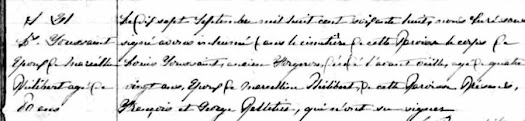 S. 51
Ls. Toussaint
Epoux de Marcelline
Philibert agé de
80 ans
Le dix sept Septembre mil huit cent soixante huit, nous Curé sous
signé avons inhumé dans le cimetière de cette Paroisse le corps de
Louis Toussaint, ancien Voyageur, décédé l'avant veille, agé de quatre
vingt ans, Epoux de Marcelline Philibert, de cette Paroisse. Présents,
François et George Pelletier, qui n'ont su signer.